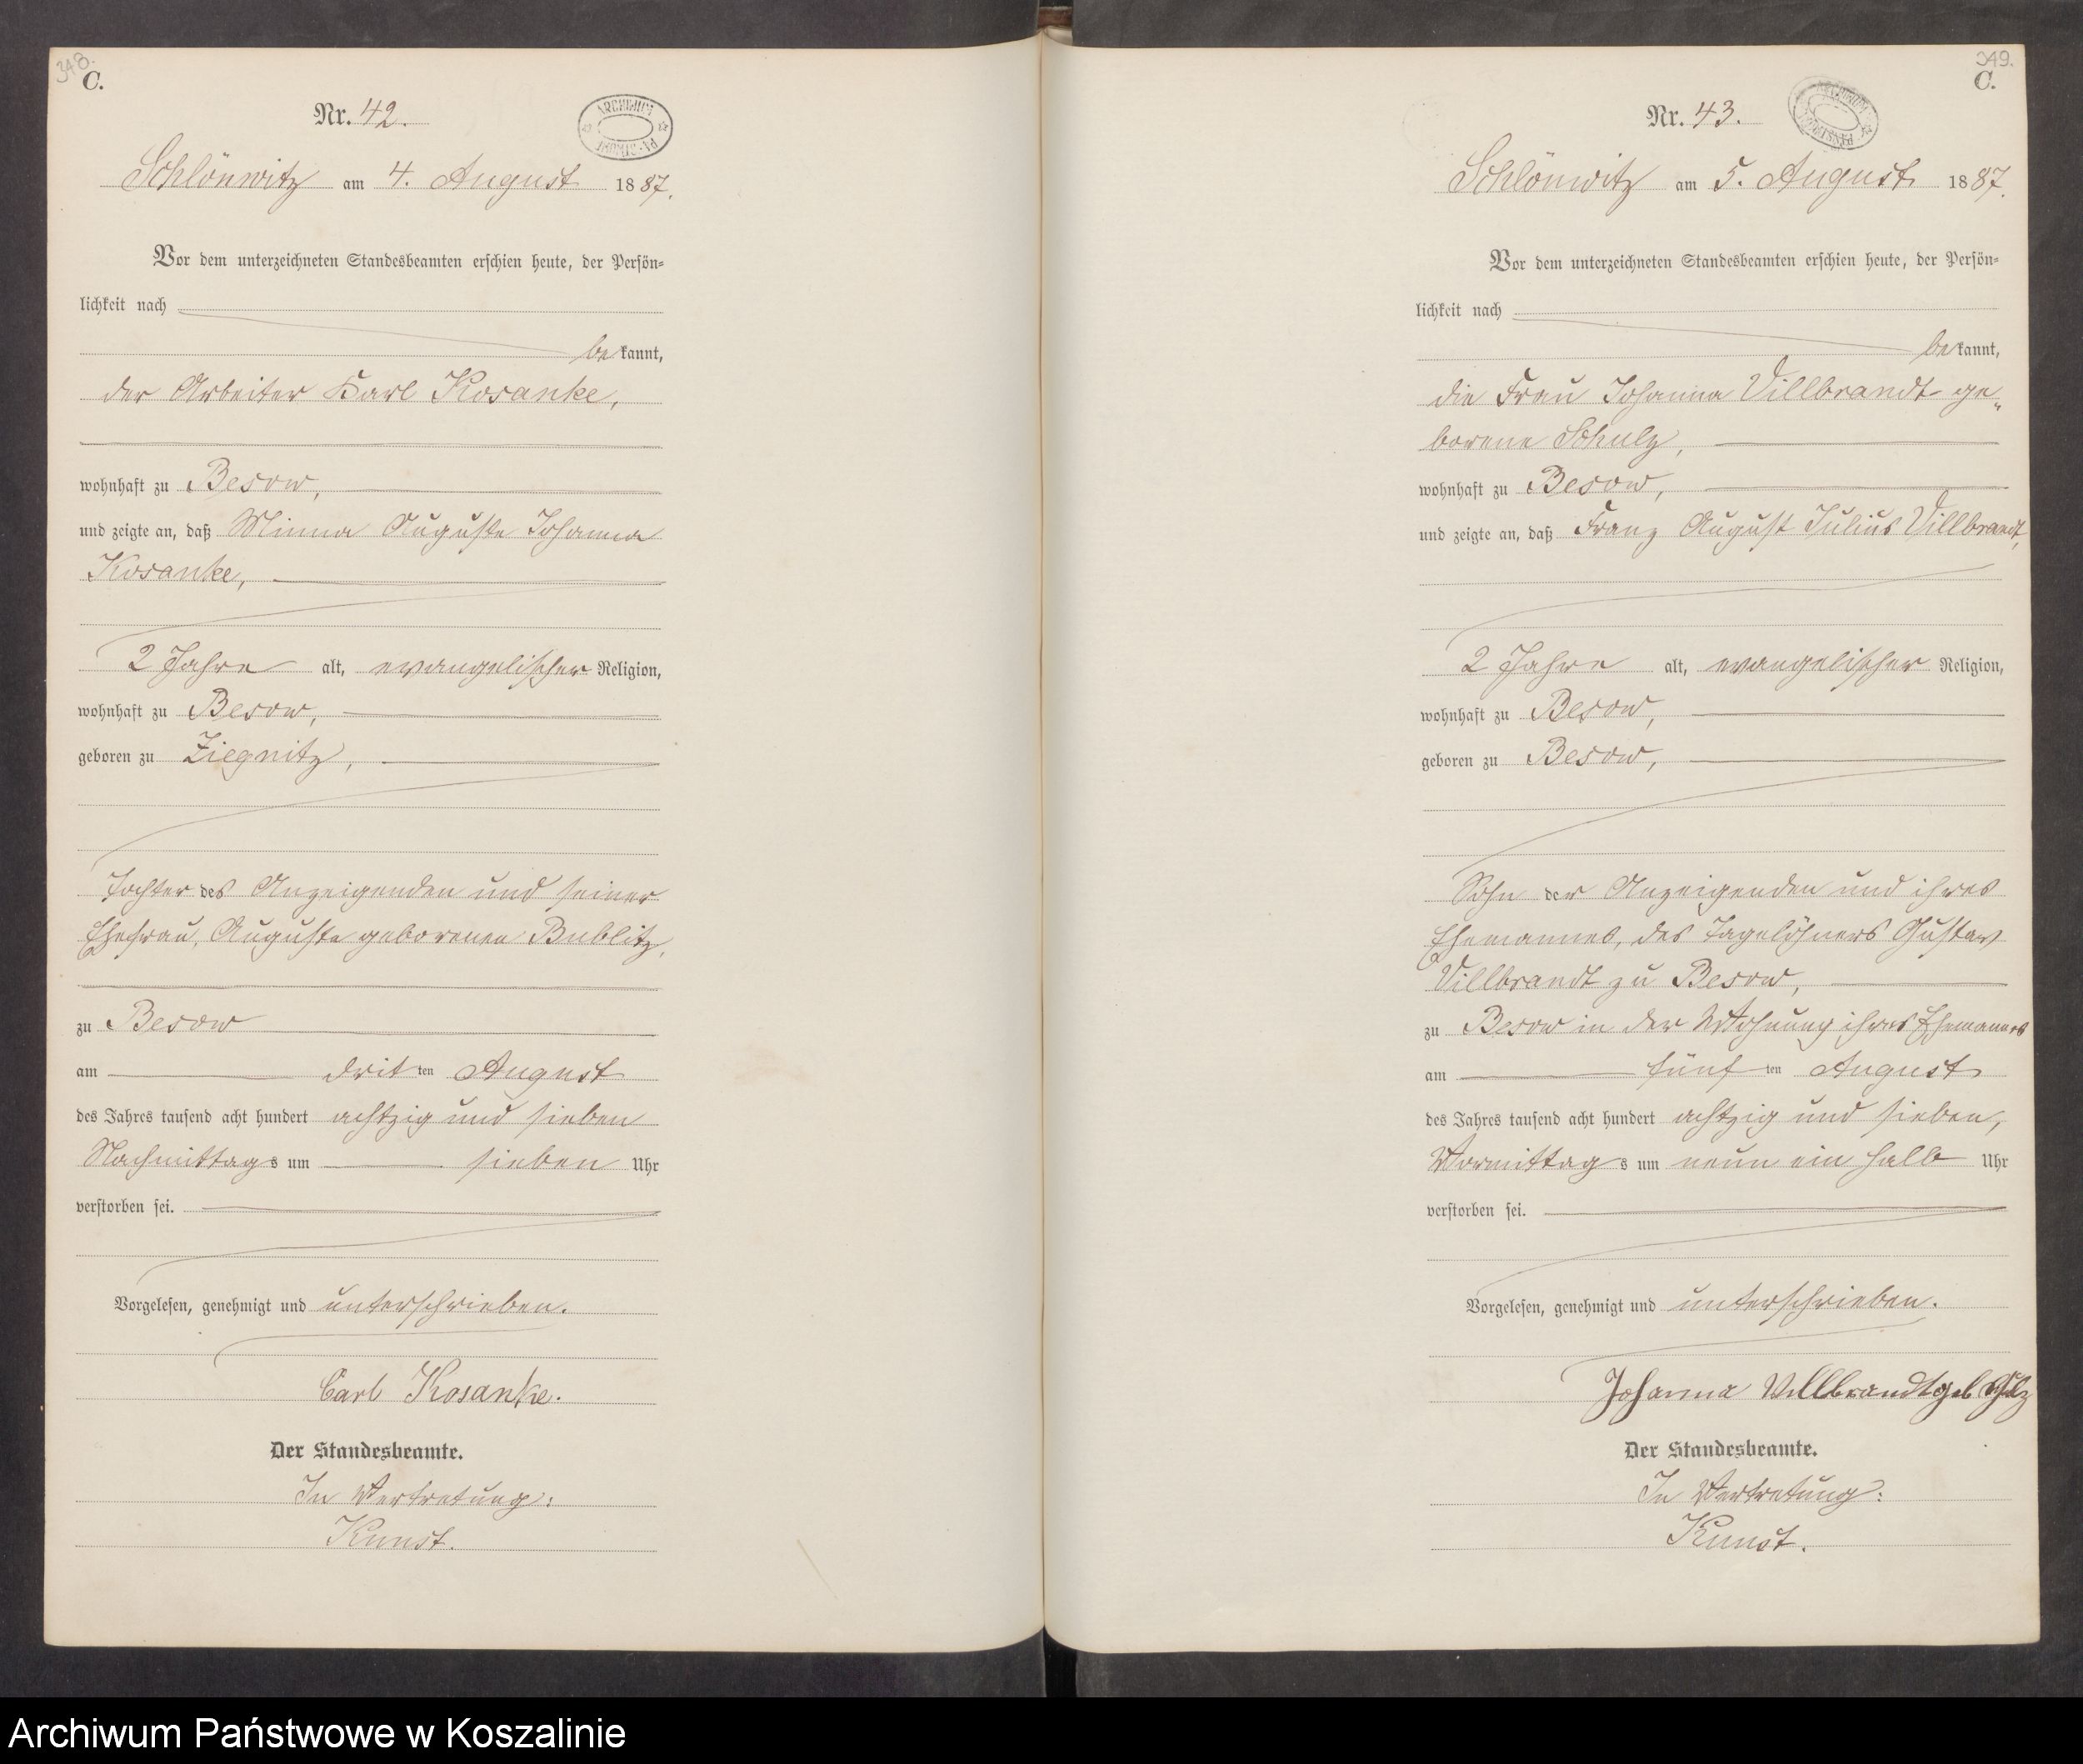 348.
C.
Nr. 42.
Schlönwitz am 4. August 1887.
Vor dem unterzeichneten Standesbeamten erschien heute, der Persön-
lichkeit nach
bekannt,
der Arbeiter Karl Kosanke,
wohnhaft zu Besow,
und zeigte an, daß Minna Auguste Johanna
Kosanke,
2 Jahre alt, evangelischer Religion,
wohnhaft zu Besow,
geboren zu Ziegnitz,
Tochter des Anzeigenden und seiner
Ehefrau, Auguste geborenen Bublitz,
zu Besow
am dritten August
des Jahres tausend acht hundert achtzig und sieben
Nachmittags um sieben Uhr
verstorben sei.
Vorgelesen, genehmigt und unterschrieben.
Carl Kosanke.
Der Standesbeamte.
In Vertretung:
Kunst.
349.
C.
Nr. 43.
Schlönwitz am 5. August 1887.
Vor dem unterzeichneten Standesbeamten erschien heute, der Persön-
lichkeit nach
bekannt,
die Frau Johanna Villbrandt ge-
borene Schulz,
wohnhaft zu Besow,
und zeigte an, daß Franz August Julius Villbrandt,
2 Jahre alt, evangelischer Religion,
wohnhaft zu Besow,
geboren zu Besow,
Sohn der Anzeigenden und ihres
Ehemannes, des Tagelöhners Gustav
Villbrandt zu Besow,
zu Besow in der Wohnung ihres Ehemannes
am fünften August
des Jahres tausend acht hundert achtzig und sieben,
Vormittags um neun ein halb Uhr
verstorben sei.
Vorgelesen, genehmigt und unterschrieben.
Johanna Villbrandt geb
Der Standesbeamte.
In Vertretung:
Kunst.
Archiwum Państwowe w Koszalinie